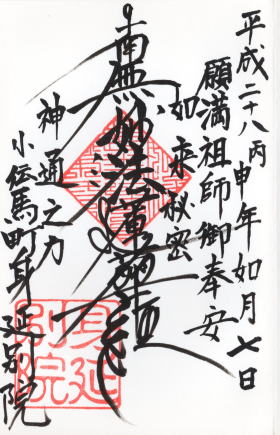 平成二十八丙申年如月七日
願満祖師御奉安
如来秘密
南無妙法蓮華経
神通之力
小伝馬町身延別院
身延別院